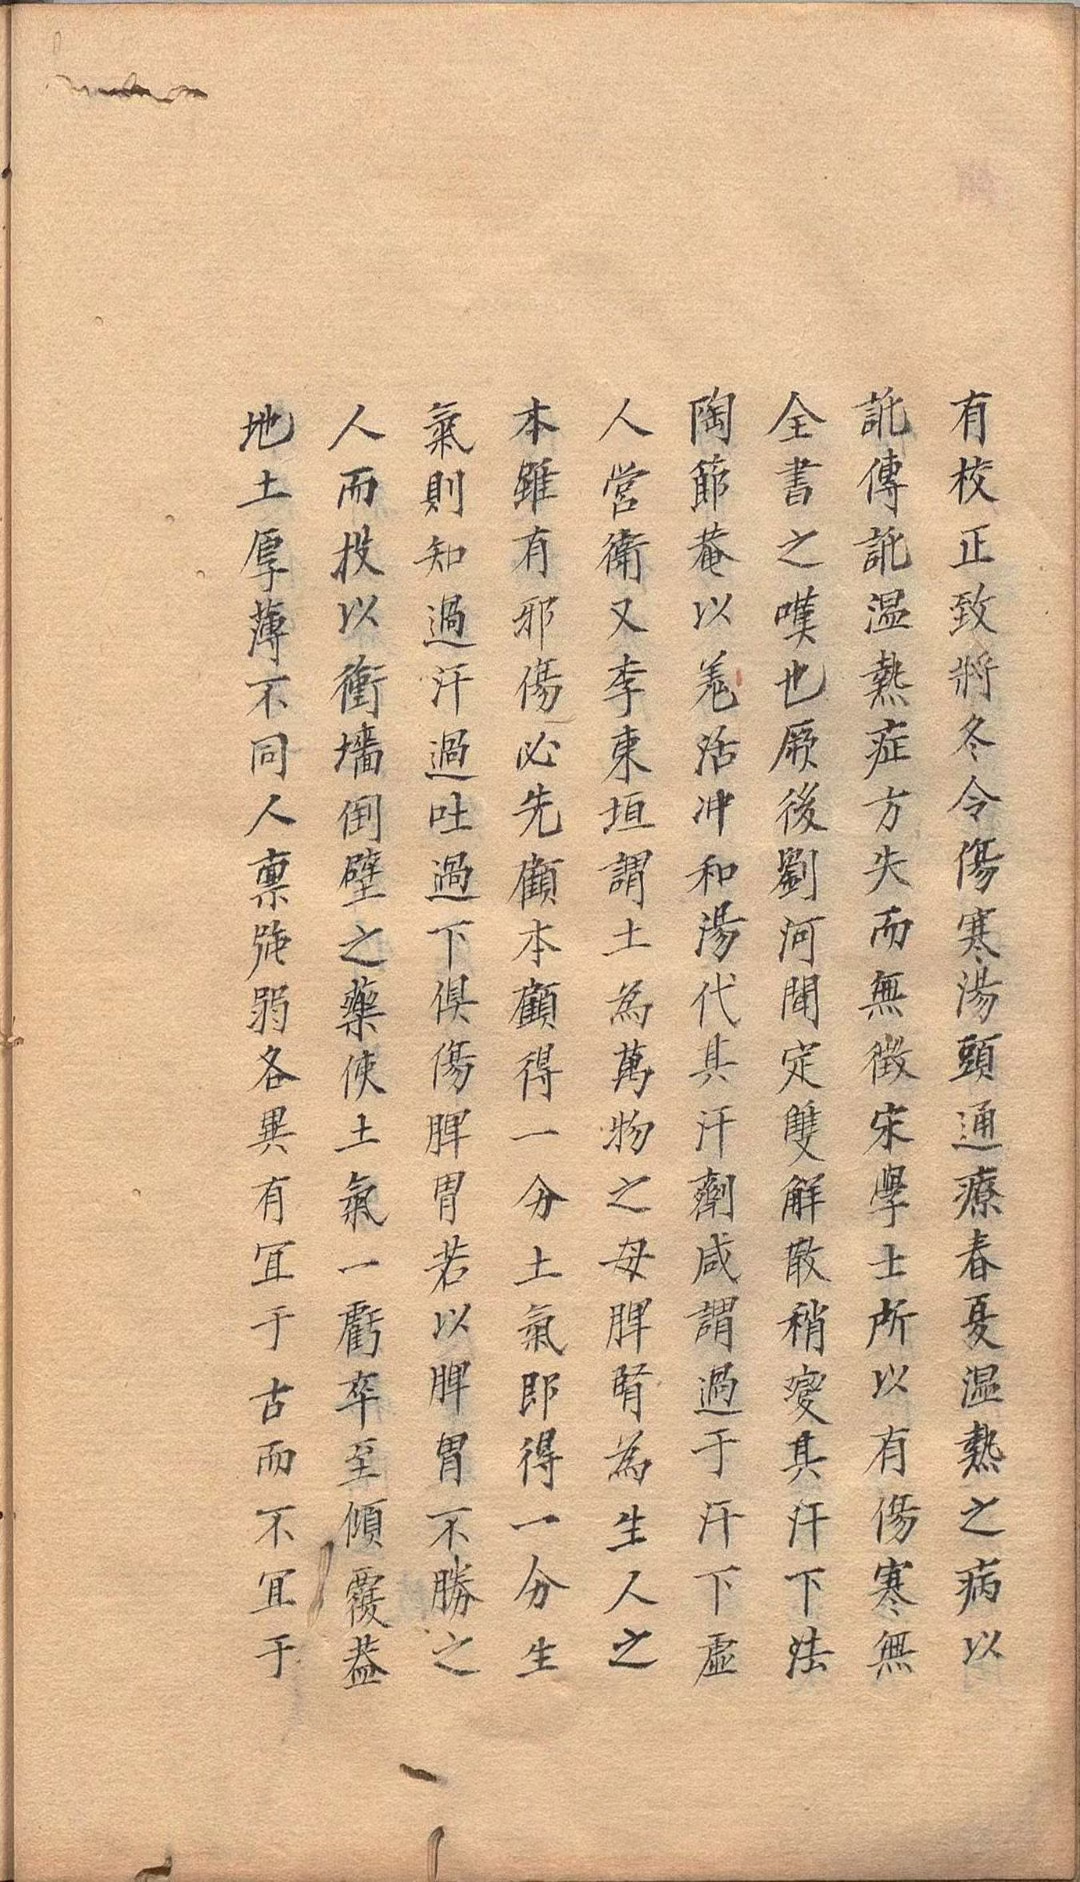 有校正致將冬令傷寒湯頭通療春夏温熱之病以
訛傳訛温熱症方失而無徴宋學士所以有傷寒無
全書之嘆也厥後劉河間定雙解散稍變其汗下法
陶節菴以羗活冲和湯代其汗劑咸謂過于汗下虛
人營衛又李東垣謂土為萬物之母脾腎為生人之
本雖有邪傷必先顧本顧得一分土氣即得一分生
氣則知過汗過吐過下俱傷脾胃若以脾胃不勝之
人而投以衝墻倒壁之藥使土氣一虧卒至傾覆葢
地土厚薄不同人禀强弱各異有冝于古而不冝于